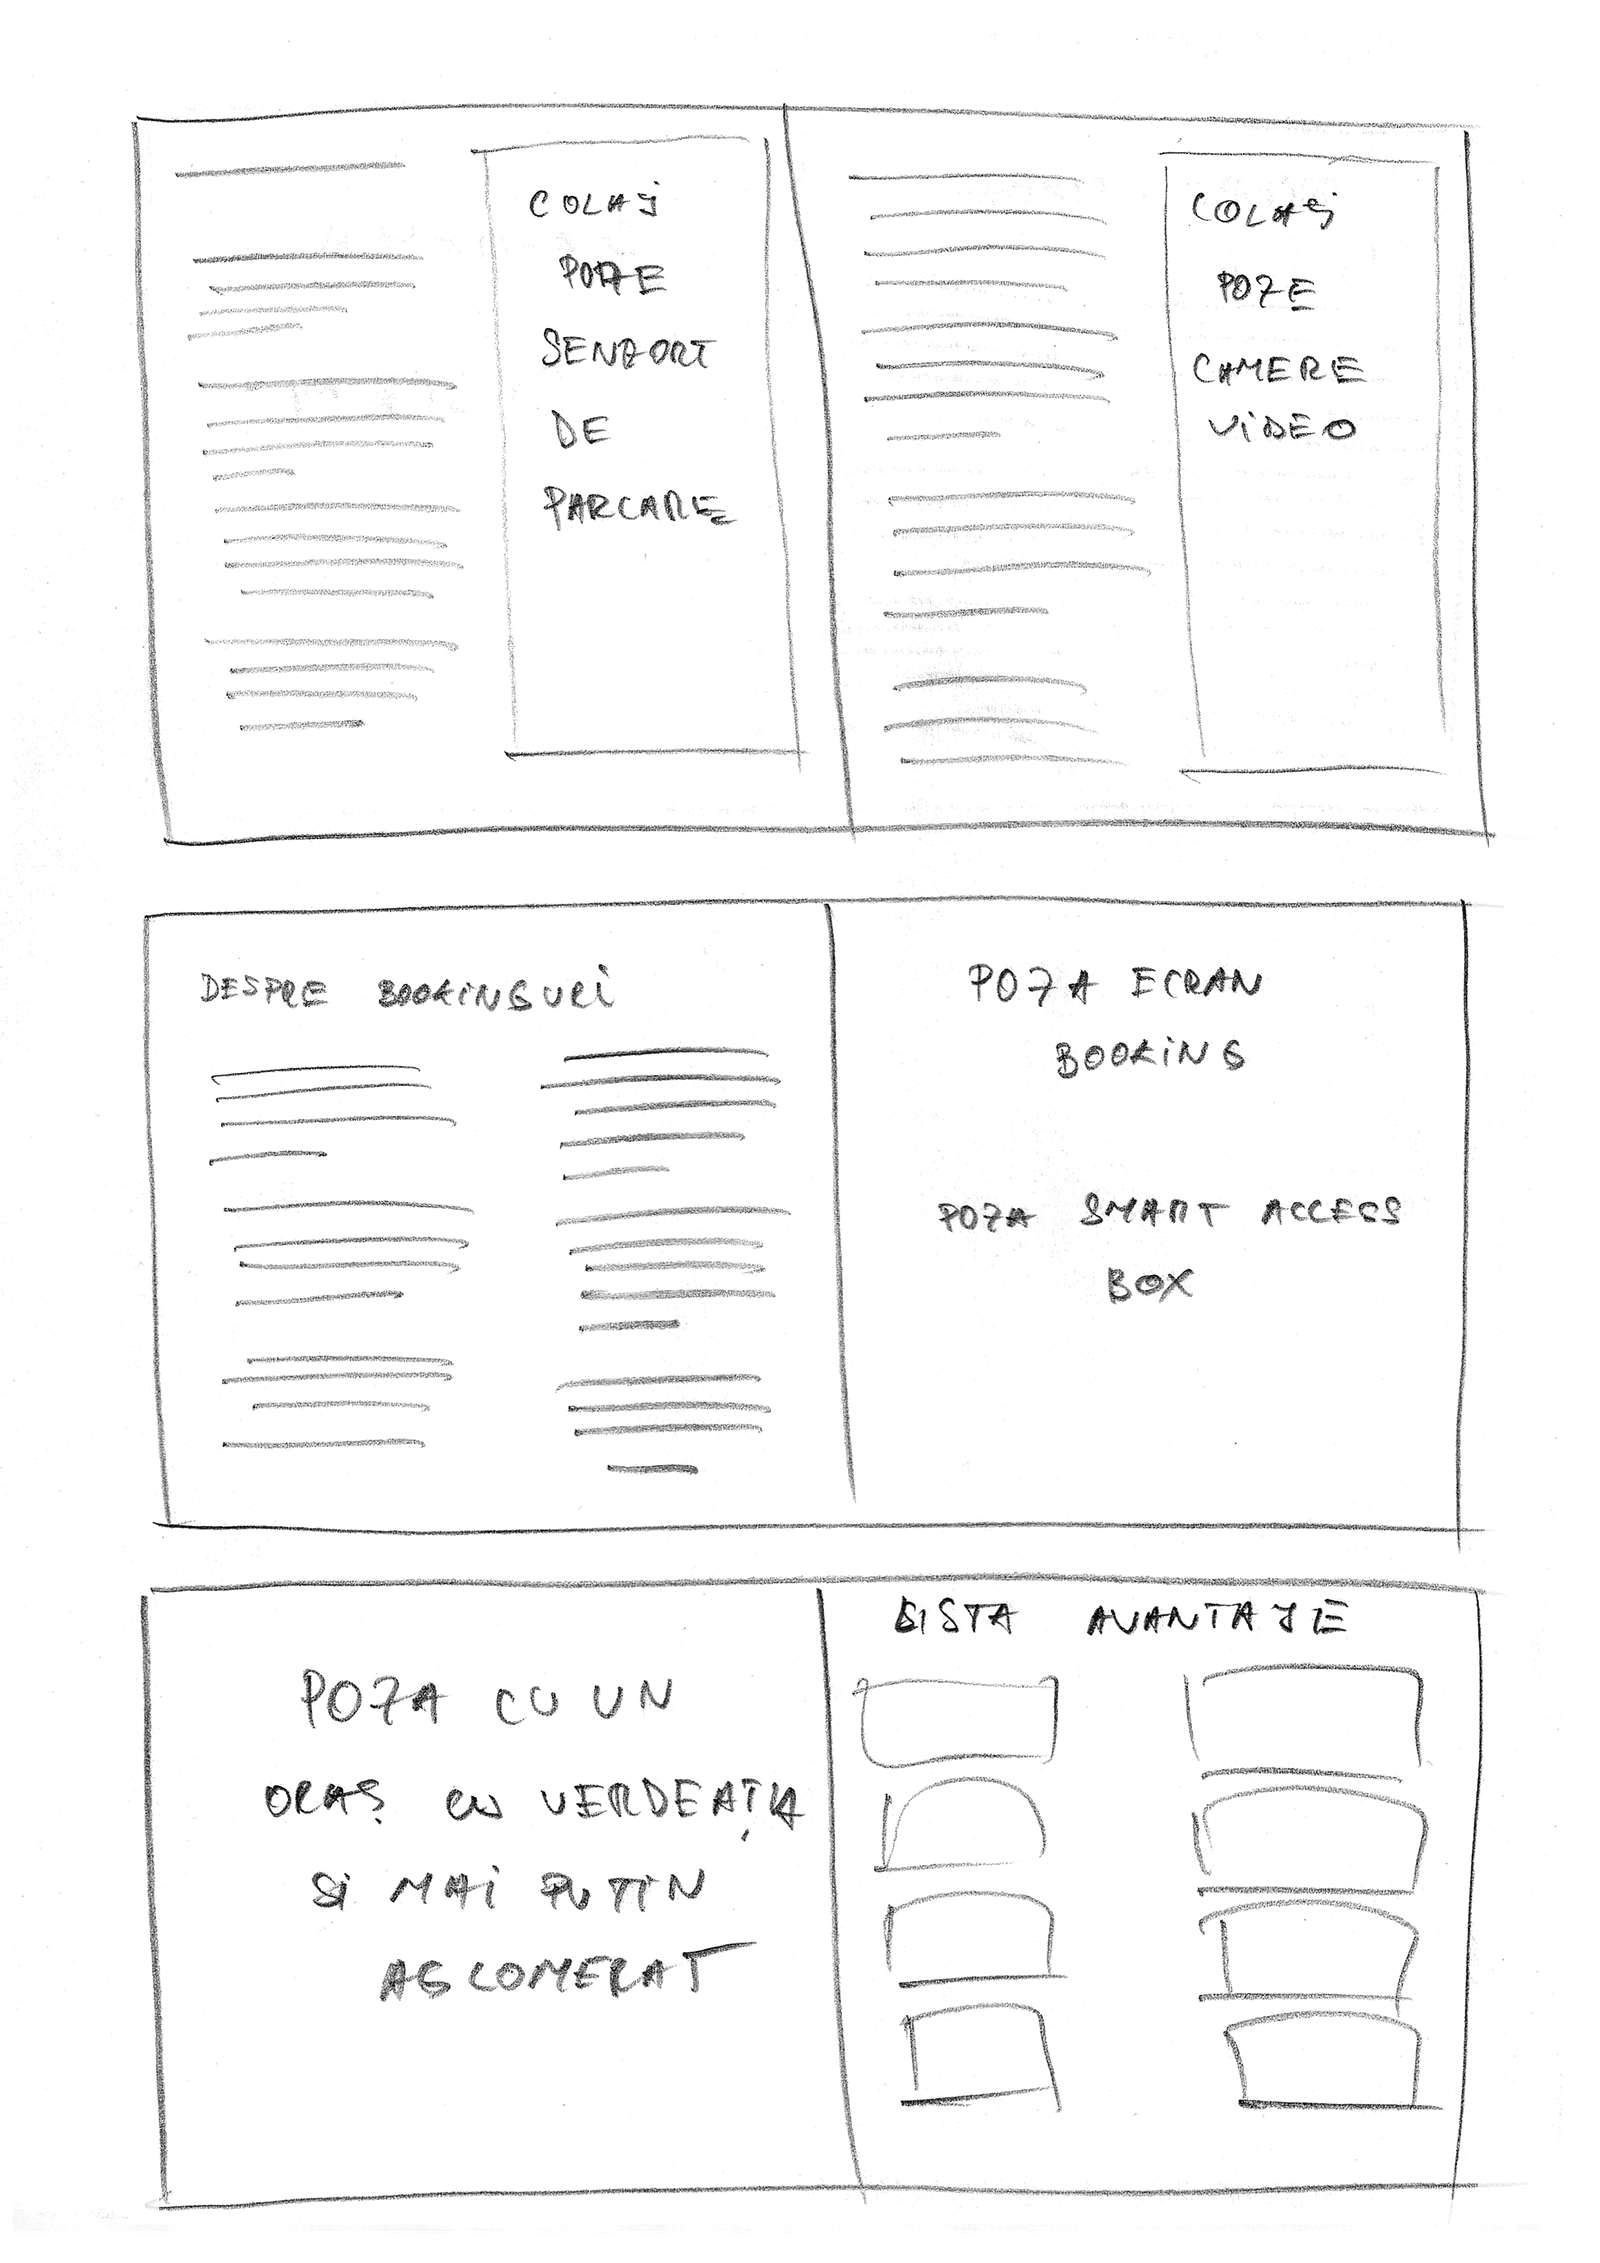 COLAJ
POZE
SENZORI
DE
PARCARE
COLAJ
POZE
CAMERE
VIDEO
DESPRE BOOKINGURI
POZA ECRAN
BOOKING
POZA SMART ACCESS
BOX
POZA CU UN
ORAȘ CU VERDEAȚĂ
SI MAI PUTIN
AGLOMERAT
LISTA AVANTAJE